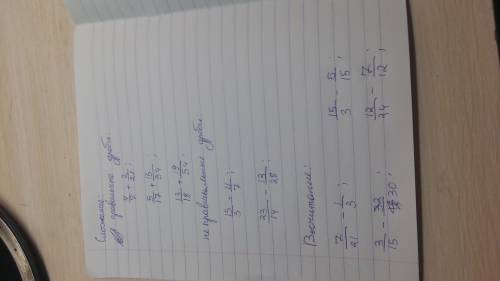 Сложение:
правильные дроби:
5/17 + 16/34;
17/18 + 19/54
неправильные дроби:
13/3 - 11/7;
23/14 - 13/28;
Вычитание:
7/21 - 1/3; 15/3 - 5/15;
3/15 - 22/30; 12/24 - 7/12;